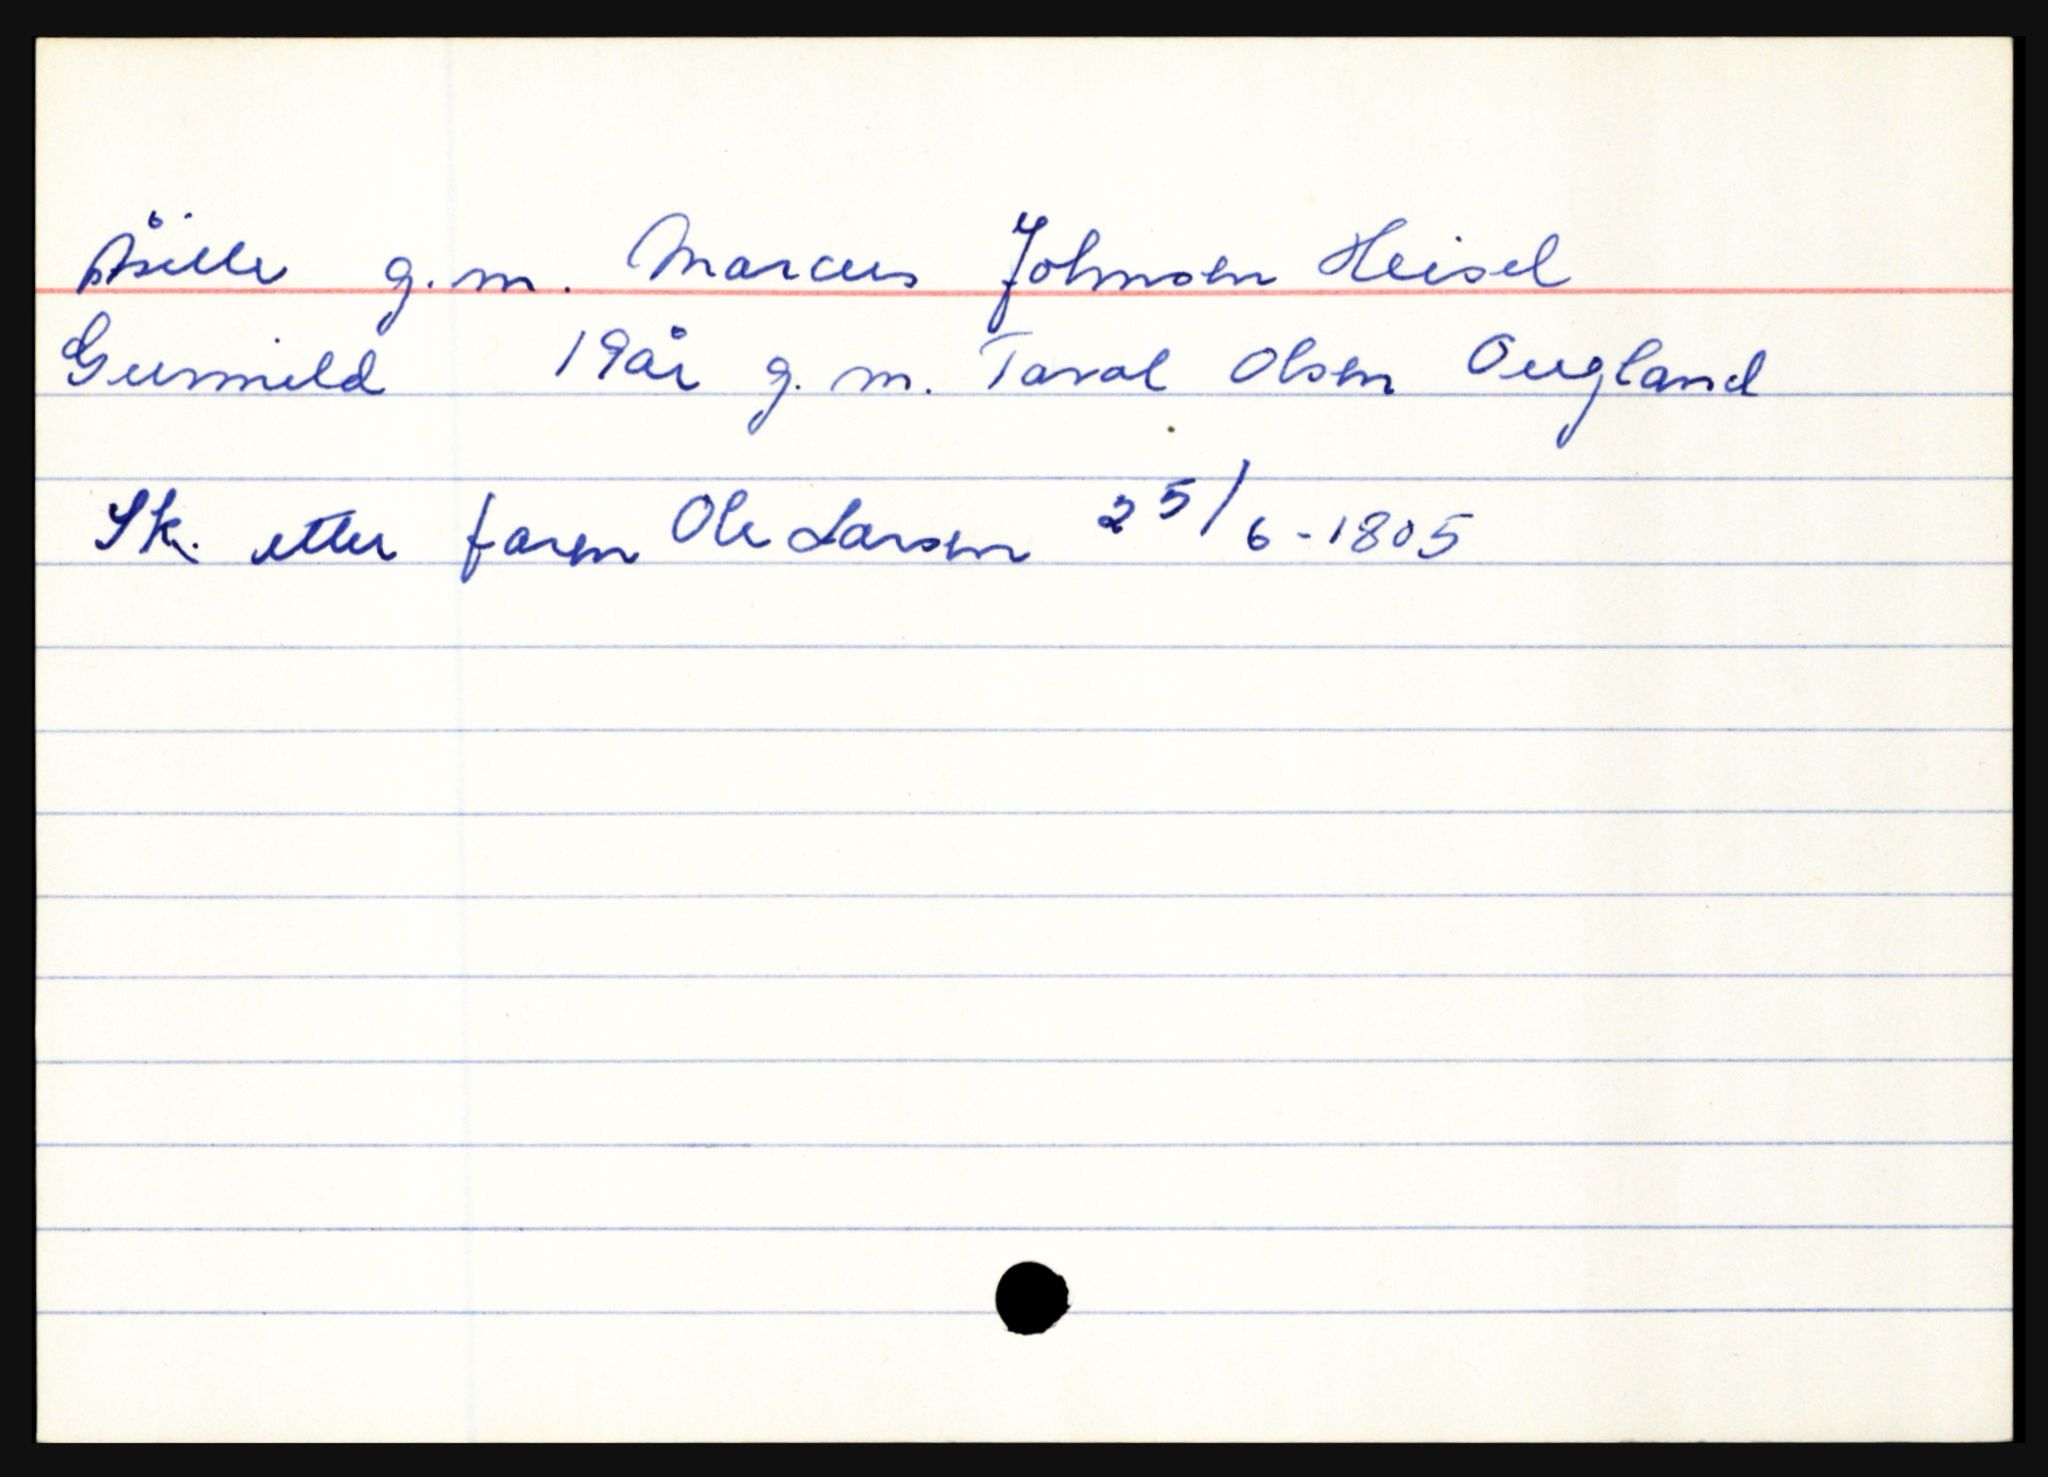 Åsille g.m. Marcus Johnsen Heisel
Gunnild 19år g.m. Taral Olsen Augland
Sk. etter faren Ole Larsen 25/6-1805